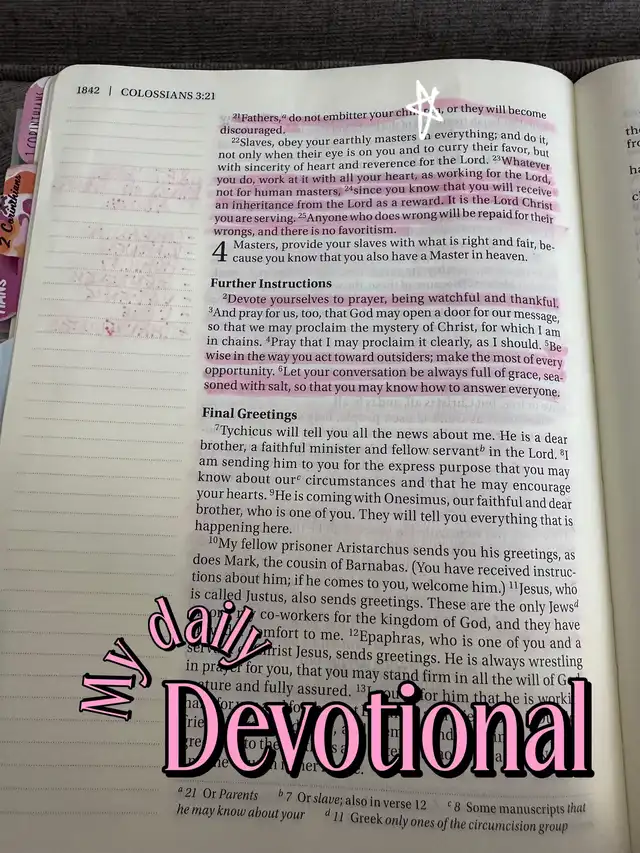 1842 | COLOSSIANS 3:21
1 CORINTHIANS
2 Corinthians
21Fathers,a do not embitter your or they will become
discouraged.
22Slaves, obey your earthly masters in everything; and do it,
not only when their eye is on you and to curry their favor, but
with sincerity of heart and reverence for the Lord. 23Whatever
you do, work at it with all your heart, as working for the Lord,
not for human masters, 24since you know that you will receive
an inheritance from the Lord as a reward. It is the Lord Christ
you are serving. 25Anyone who does wrong will be repaid for their
wrongs, and there is no favoritism.
4 Masters, provide your slaves with what is right and fair, be-
cause you know that you also have a Master in heaven.
Further Instructions
2Devote yourselves to prayer, being watchful and thankful.
3And pray for us, too, that God may open a door for our message,
so that we may proclaim the mystery of Christ, for which I am
in chains. 4Pray that I may proclaim it clearly, as I should. 5Be
wise in the way you act toward outsiders; make the most of every
opportunity. 6Let your conversation be always full of grace, sea-
soned with salt, so that you may know how to answer everyone.
Final Greetings
7Tychicus will tell you all the news about me. He is a dear
brother, a faithful minister and fellow servantb in the Lord. 8I
am sending him to you for the express purpose that you may
know about ourc circumstances and that he may encourage
your hearts. 9He is coming with Onesimus, our faithful and dear
brother, who is one of you. They will tell you everything that is
happening here.
10My fellow prisoner Aristarchus sends you his greetings, as
does Mark, the cousin of Barnabas. (You have received instruc-
tions about him; if he comes to you, welcome him.) 11Jesus, who
is called Justus, also sends greetings. These are the only Jewsd
co-workers for the kingdom of God, and they have
to me. 12Epaphras, who is one of you and a
Jesus, sends greetings. He is always wrestling
in prayer for you, that you may stand firm in all the will of
and fully assured. for him that he is
My daily
Devotional
a 21 Or Parents b 7 Or slave; also in verse 12 c 8 Some manuscripts that
he may know about your d 11 Greek only ones of the circumcision group